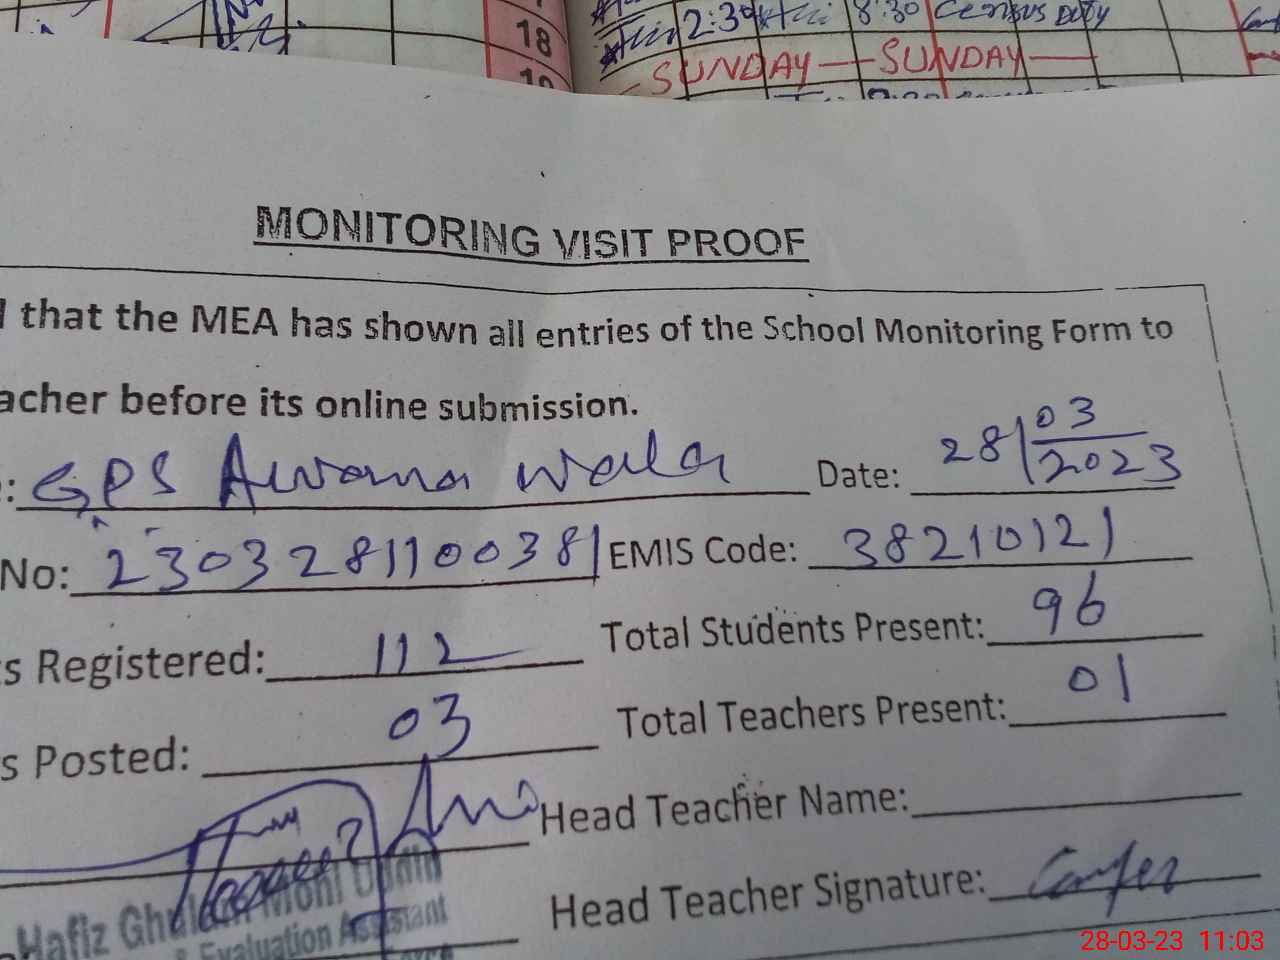 18
2:30
8:30 Census Duty
19
SUNDAY — SUNDAY —
MONITORING VISIT PROOF
that the MEA has shown all entries of the School Monitoring Form to
acher before its online submission.
: GPS Awana wala Date: 28/03/2023
No: 2303281100381 EMIS Code: 38210121
s Registered: 112 Total Students Present: 96
s Posted: 03 Total Teachers Present: 01
Head Teacher Name:
Head Teacher Signature:
Hafiz Ghulam Mohi Uddin
& Evaluation Assistant
28-03-23 11:03